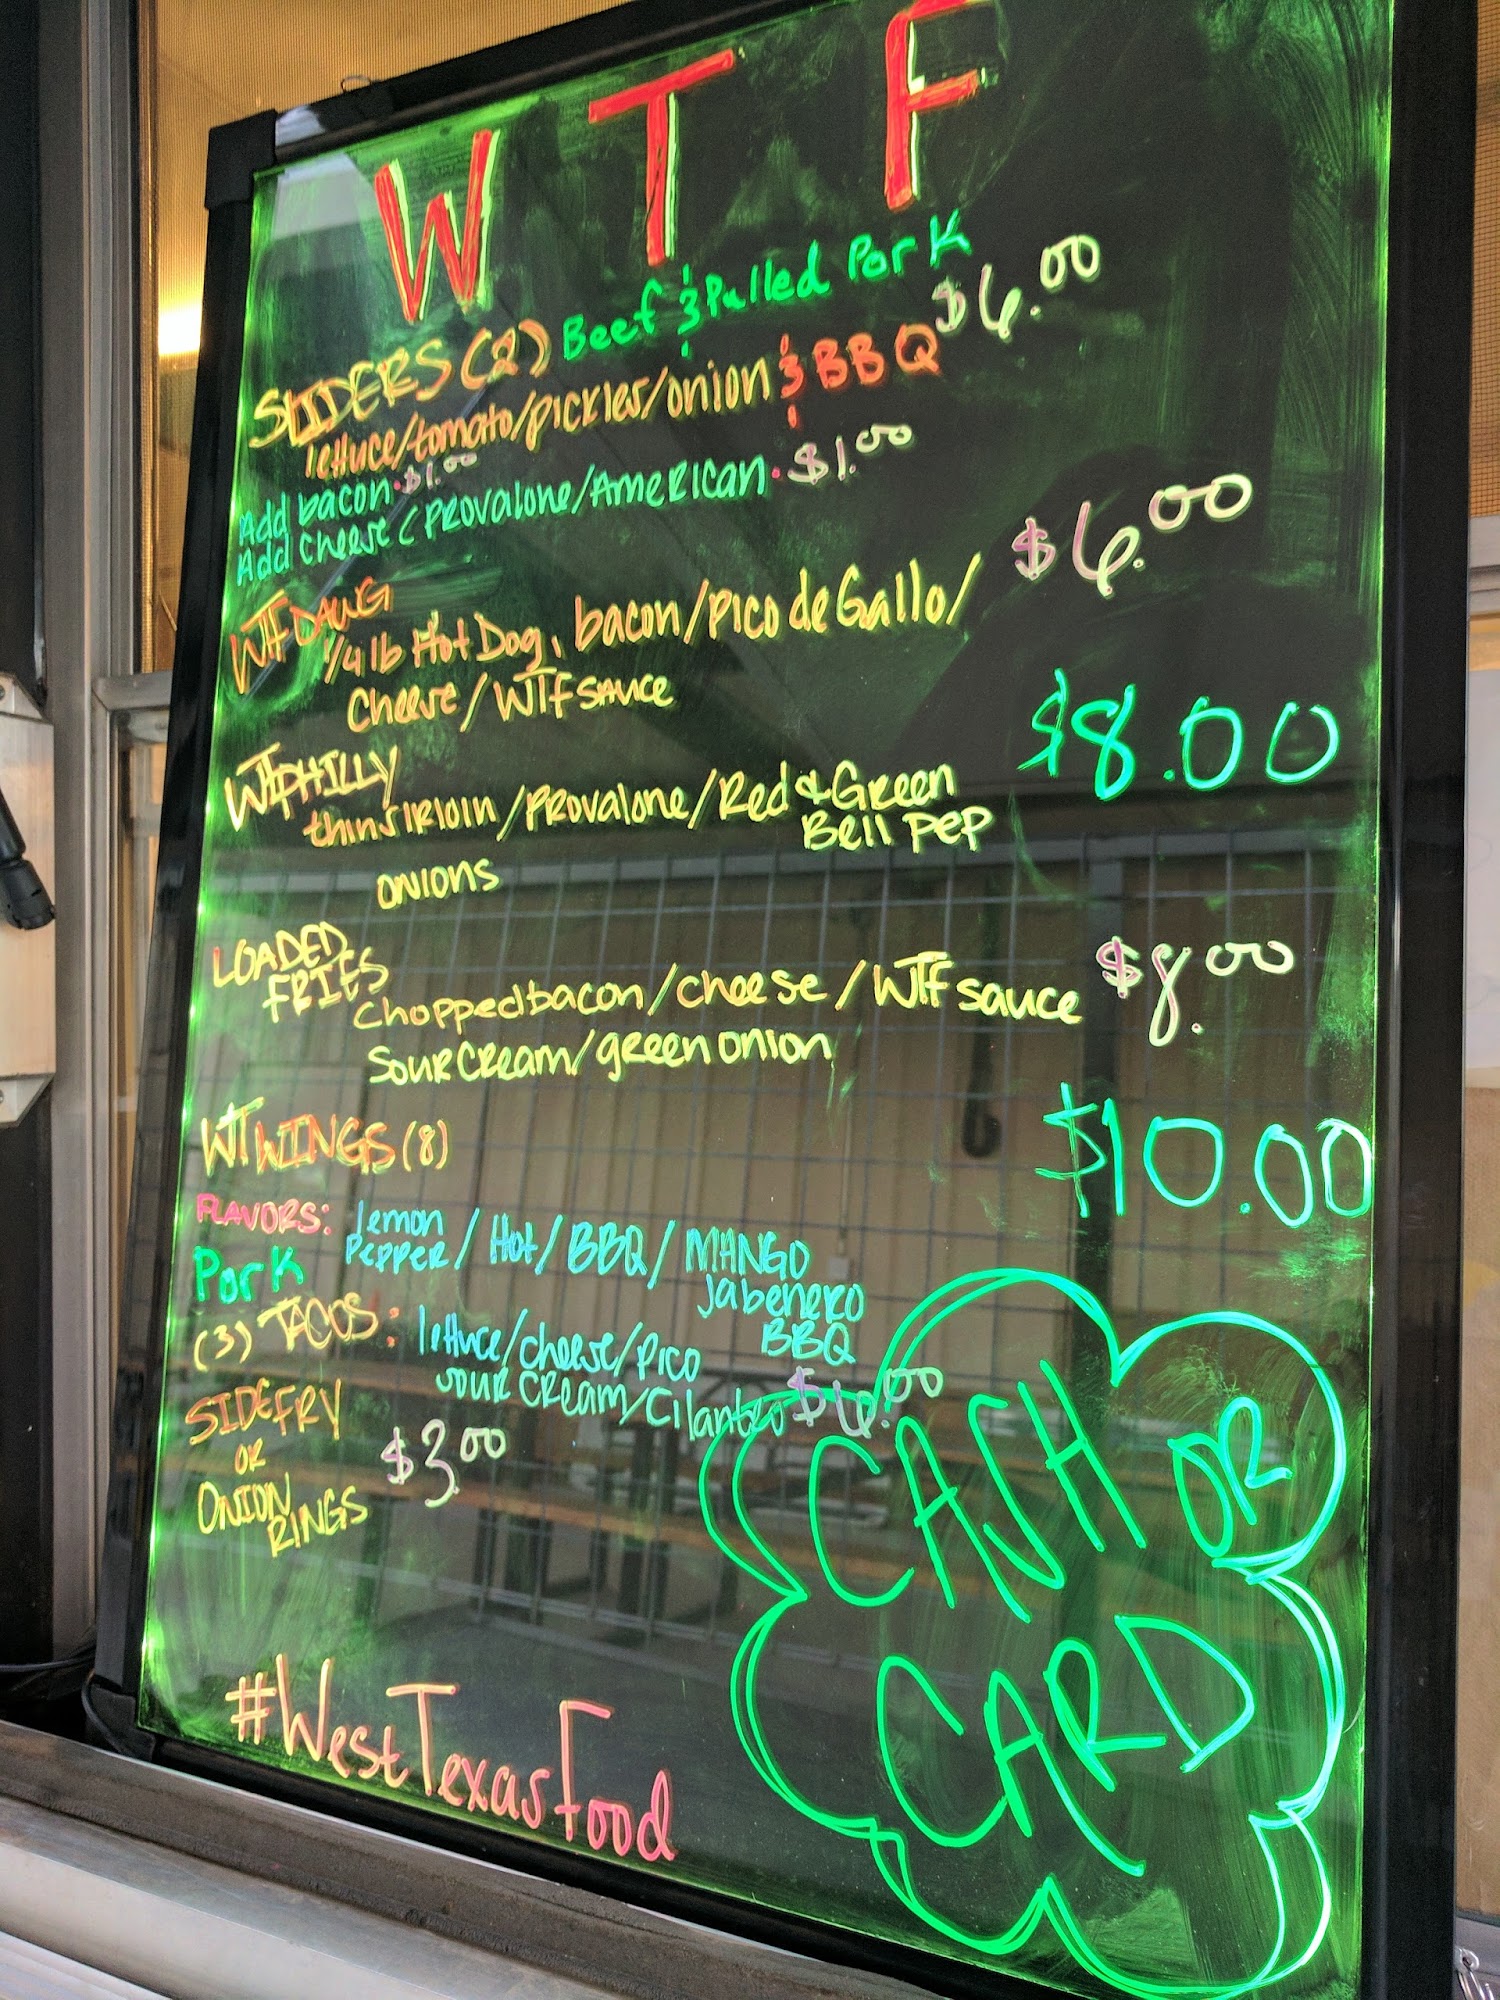 WTF
SLIDERS (2) Beef & Pulled Pork $6.00
lettuce/tomato/pickles/onion & BBQ
Add bacon · $1.00
Add Cheese (Provalone/American · $1.00
WTF DAWG $6.00
1/4 lb Hot Dog, bacon/Pico de Gallo/
Cheese/WTF sauce
WTPHILLY $8.00
thin sirloin/Provalone/Red & Green
Bell Pep
onions
LOADED
FRIES
Chopped bacon/cheese/WTF sauce $8.00
sour cream/green onion
WTWINGS (8) $10.00
FLAVORS: lemon
Pepper/Hot/BBQ/MANGO
Jabenero
BBQ
Pork
(3) TACOS: lettuce/cheese/Pico
sour cream/Cilantro $6.00
SIDE FRY
OR
ONION
RINGS $3.00
CASH OR
CARD
#WestTexasFood